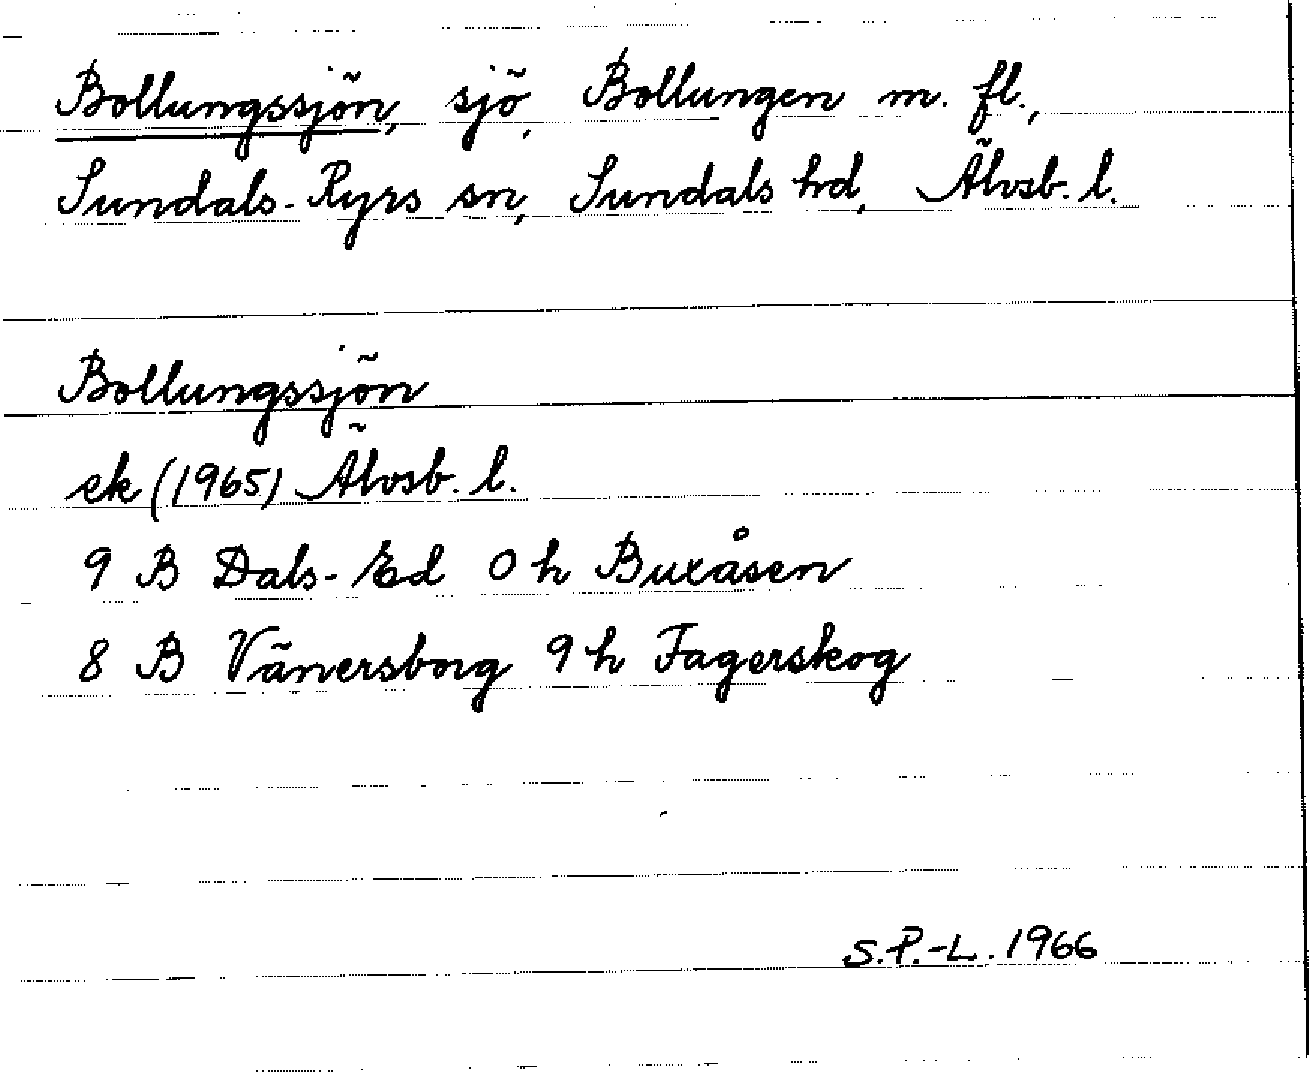 Bollungssjön, sjö, Bollungen m. fl.,
Sundals-Ryrs sn, Sundals hd, Älvsb. l.
Bollungssjön
ek (1965) Älvsb. l.
9 B Dals-Ed 0 h Buxåsen
8 B Vänersborg 9 h Fagerskog
S.P.-L. 1966